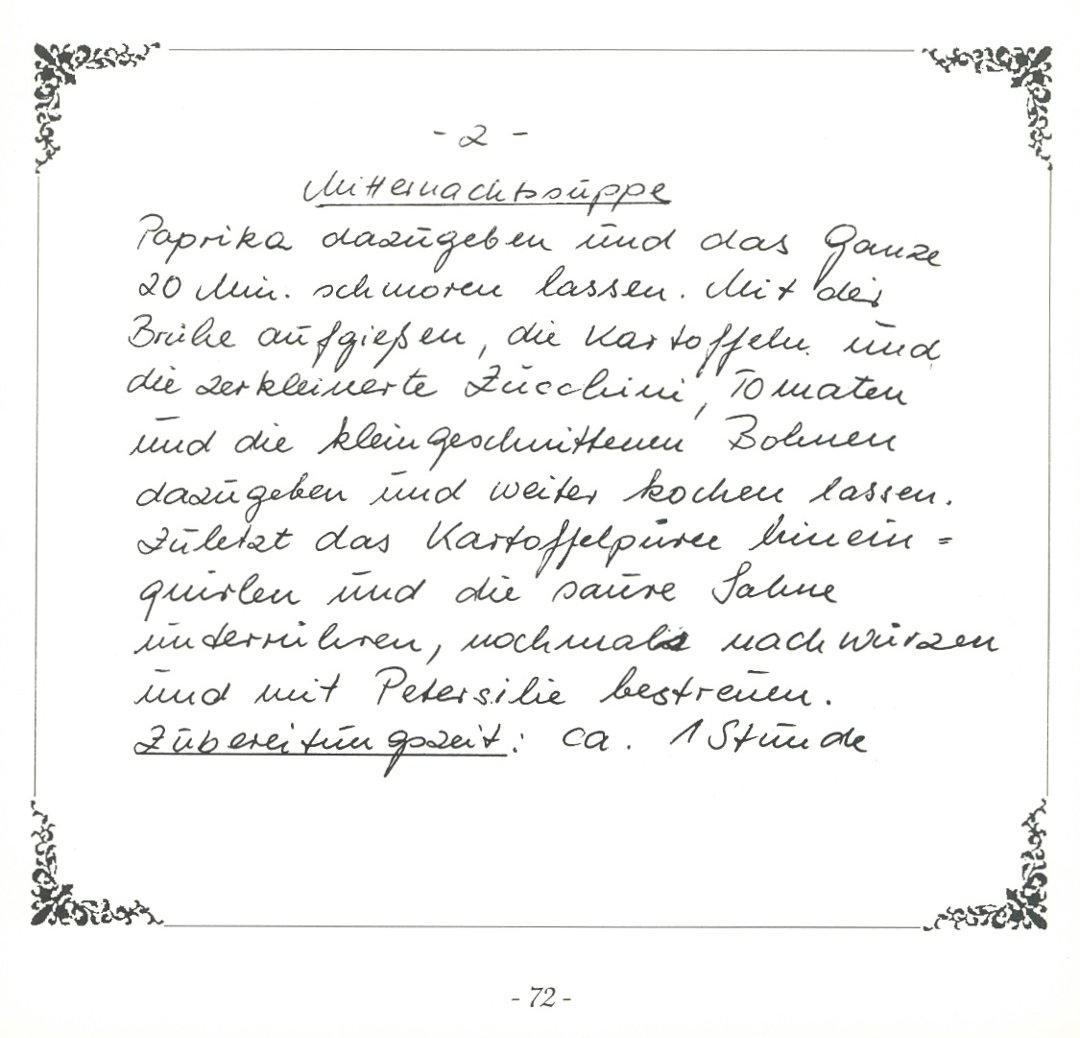 - 2 -
Mitternachtssuppe
Paprika dazugeben und das Ganze
20 Min. schmoren lassen. Mit der
Brühe aufgießen, die Kartoffeln und
die zerkleinerte Zucchini, Tomaten
und die kleingeschnittenen Bohnen
dazugeben und weiter kochen lassen.
Zuletzt das Kartoffelpüree hinein=
quirlen und die saure Sahne
unterrühren, nochmals nachwürzen
und mit Petersilie bestreuen.
Zubereitungszeit: ca. 1 Stunde
- 72 -